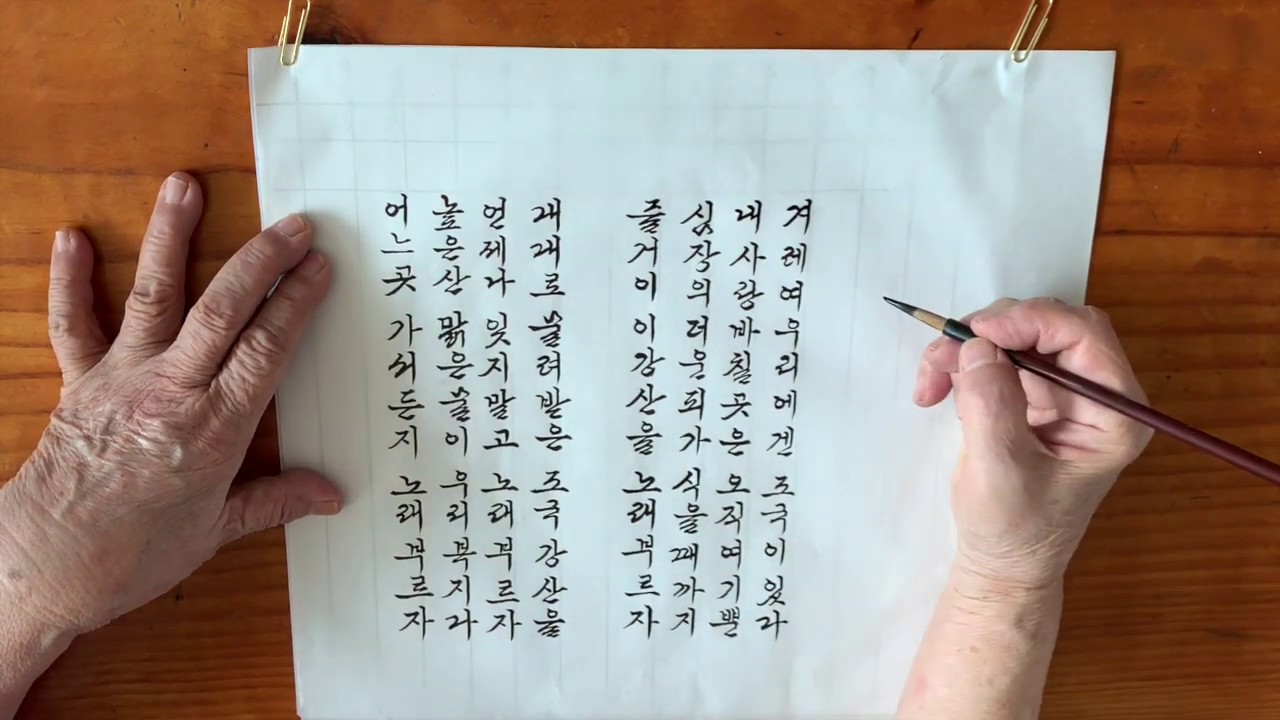 겨레여 우리에겐 조국이있다
내사랑 바칠곳은 오직여기뿐
심장의 더운피가 식을때까지
즐거이 이강산을 노래부르자
대대로 물려받은 조국강산을
언제나 잊지말고 노래부르자
높은산 맑은물이 우리복지라
어느곳 가서든지 노래부르자